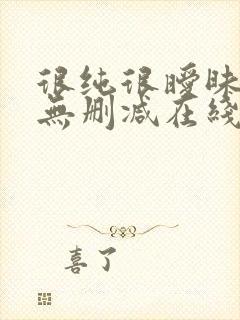 很纯很暧昧
無删减在綫
喜了